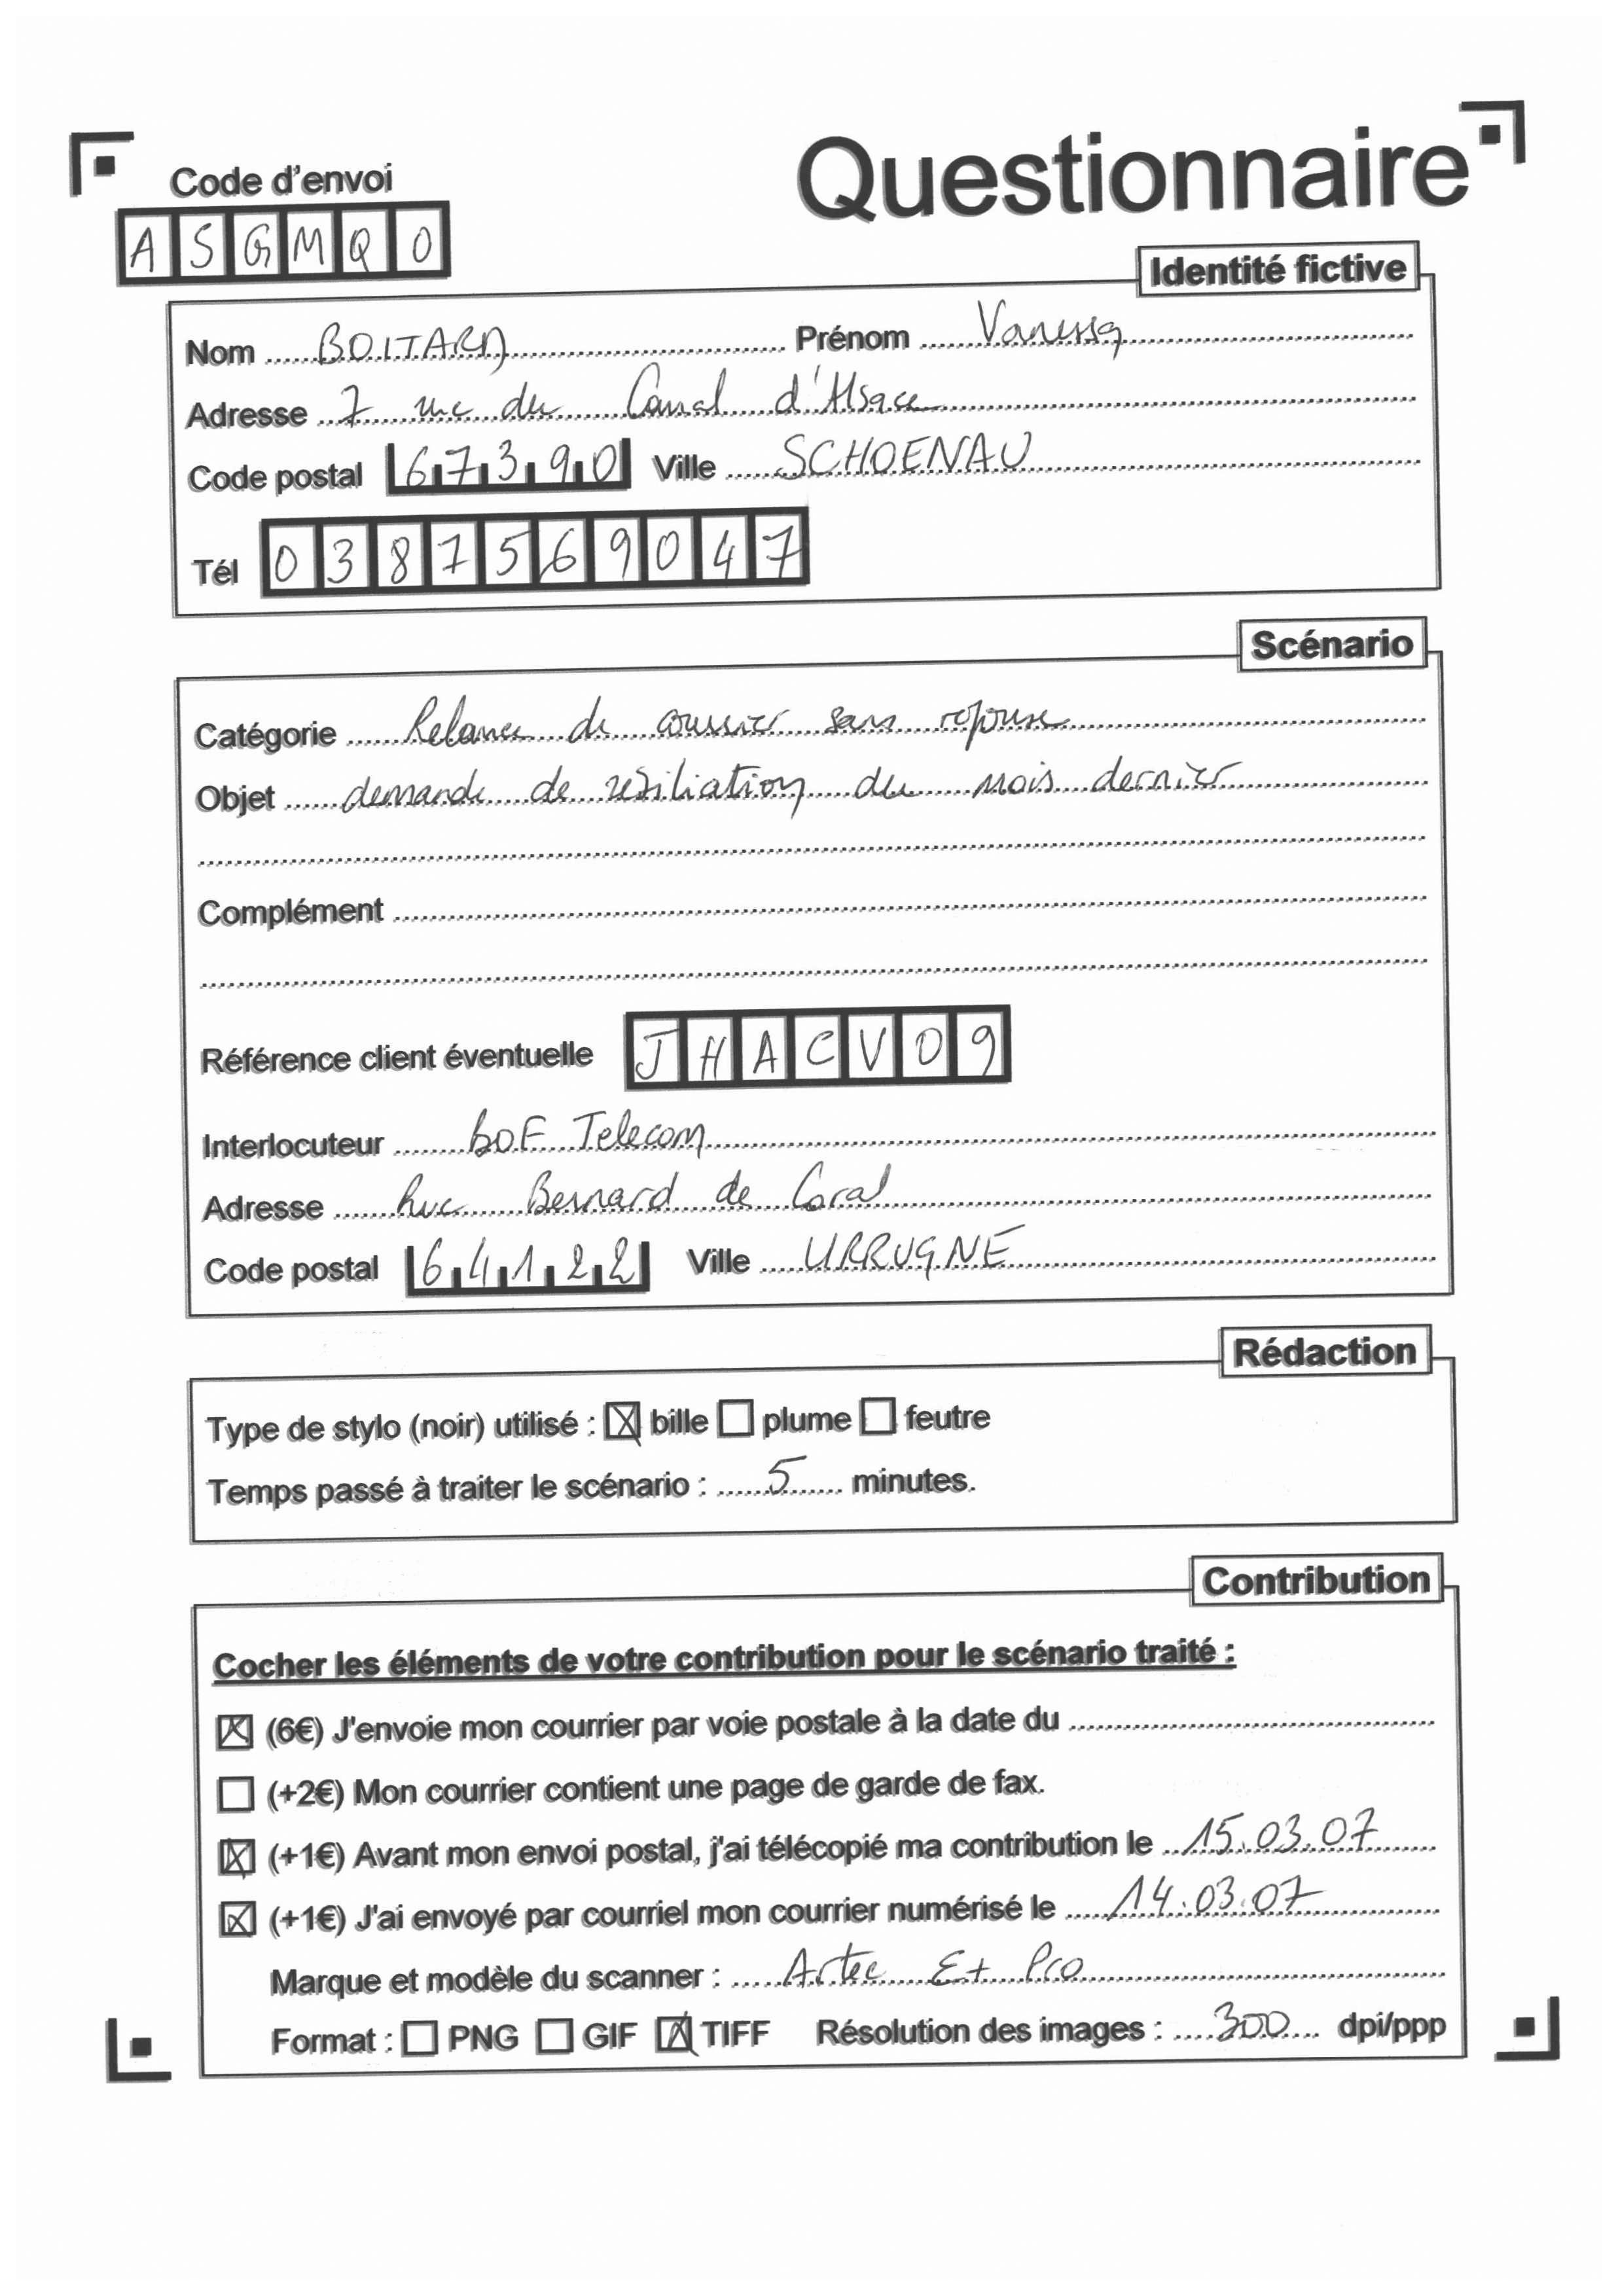 Questionnaire
Code d'envoi
A S G M Q 0
Identité fictive
Nom BOITARD Prénom Vanessa
Adresse 7 rue du Canal d'Alsace
Code postal 67390 Ville SCHOENAU
Tél 0387569047
Scénario
Catégorie Relance de courrier sans reponse
Objet demande de résiliation du mois dernier
Complément
Référence client éventuelle J H A C V 0 9
Interlocuteur BOF Telecom
Adresse Rue Bernard de Coral
Code postal 64122 Ville URRUGNE
Rédaction
Type de stylo (noir) utilisé : ☒ bille ☐ plume ☐ feutre
Temps passé à traiter le scénario : 5 minutes.
Contribution
Cocher les éléments de votre contribution pour le scénario traité :
☒ (6€) J'envoie mon courrier par voie postale à la date du
☐ (+2€) Mon courrier contient une page de garde de fax.
☒ (+1€) Avant mon envoi postal, j'ai télécopié ma contribution le 15.03.07
☒ (+1€) J'ai envoyé par courriel mon courrier numérisé le 14.03.07
Marque et modèle du scanner : Artec E+ Pro
Format : ☐ PNG ☐ GIF ☒ TIFF Résolution des images : 300 dpi/ppp